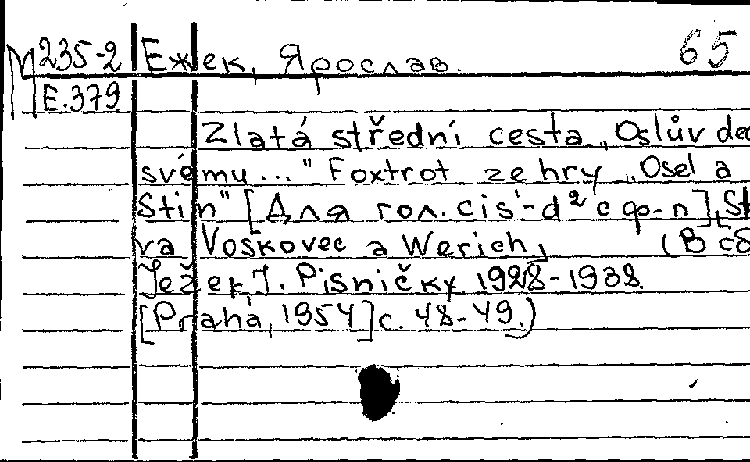 М235-2 Ежек, Ярослав. 65
Е.379
Zlatá střední cesta „Oslův ded
svému..." Foxtrot ze hry „Osel a
Stín" [Для гол. cis¹-d² с ф-п], St
va Voskovec a Werich, (В сб
Ježek, J. Pisničky 1928-1938
[Praha, 1954] с. 48-49.)